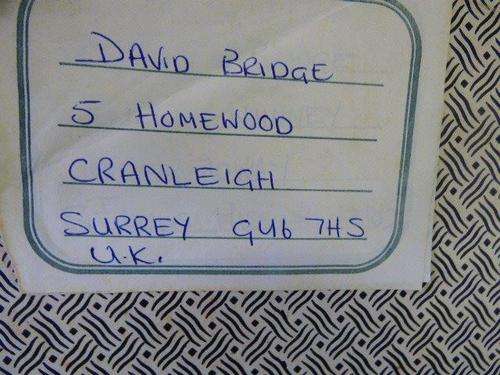 DAVID BRIDGE
5 HOMEWOOD
CRANLEIGH
SURREY GU6 7HS
U.K.